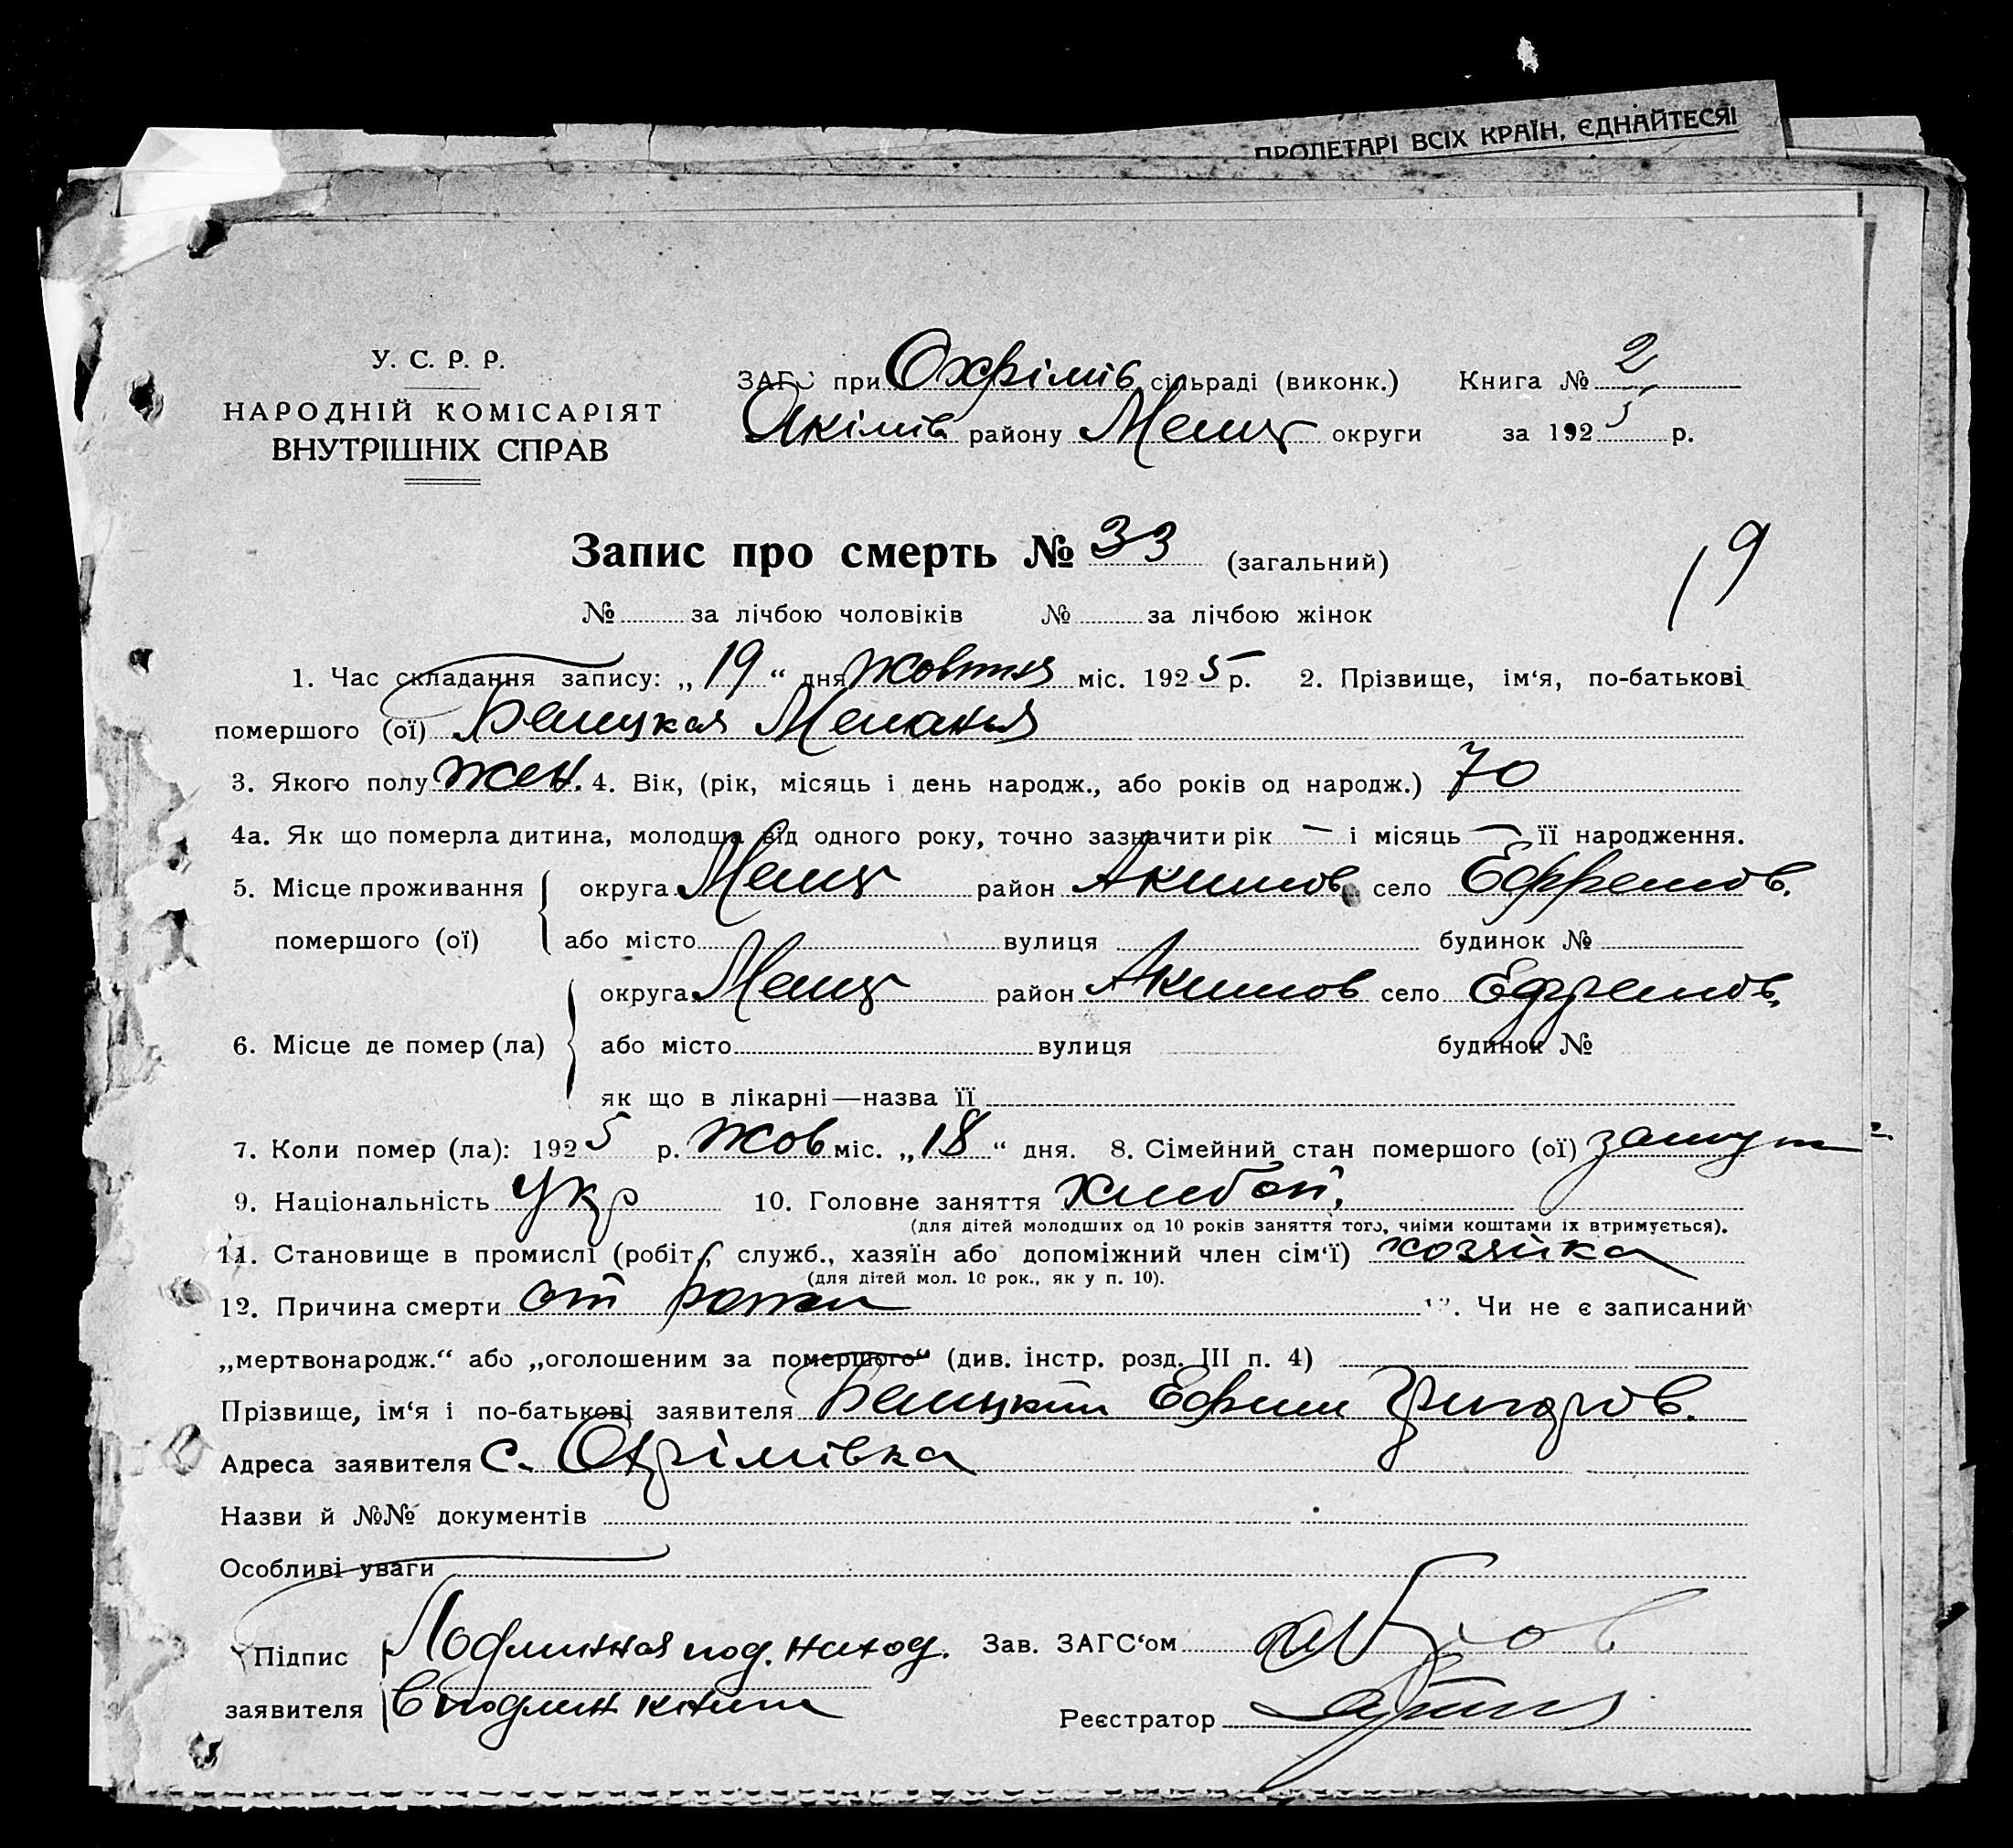 ПРОЛЕТАРІ ВСІХ КРАЇН, ЄДНАЙТЕСЯ!
У. С. Р. Р.
НАРОДНІЙ КОМІСАРІЯТ
ВНУТРІШНІХ СПРАВ
ЗАГС при Охрімів сільраді (виконк.) Книга № 2
Якімів району Меліт округи за 1925 р.
Запис про смерть № 33 (загальний)
19
№ за лічбою чоловіків № за лічбою жінок
1. Час складання запису: „ 19 “ дня жовтня міс. 1925 р. 2. Прізвище, ім‘я, по-батькові
помершого (ої) Белицкая Меланья
3. Якого полу жен. 4. Вік, (рік, місяць і день народж., або років од народж.) 70
4а. Як що померла дитина, молодша від одного року, точно зазначити рік — і місяць — її народження.
5. Місце проживання округа Мелит район Акимов. село Ефремов.
помершого (ої) або місто вулиця будинок №
округа Мелит район Акимов село Ефремов.
6. Місце де помер (ла) або місто вулиця будинок №
як що в лікарні—назва її
7. Коли помер (ла): 1925 р. жов міс. „ 18 “ дня. 8. Сімейний стан помершого (ої)
9. Національність Укр 10. Головне заняття
(для дітей молодших од 10 років заняття того, чиїми коштами їх втримується).
11. Становище в промислі (робіт., служб., хазяїн або допоміжний член сім‘ї) хозяйка
(для дітей мол. 10 рок., як у п. 10).
12. Причина смерти от рожи Чи не є записаний
„мертвонародж.“ або „оголошеним за помершого“ (див. інстр. розд. III п. 4)
Прізвище, ім‘я і по-батькові заявителя Белицкий Ефим Григоров.
Адреса заявителя с. Охрімівка
Назви й №№ документів
Особливі уваги
Підпис Подлинная под. наход. Зав. ЗАГС‘ом
заявителя в подлин книги Реєстратор